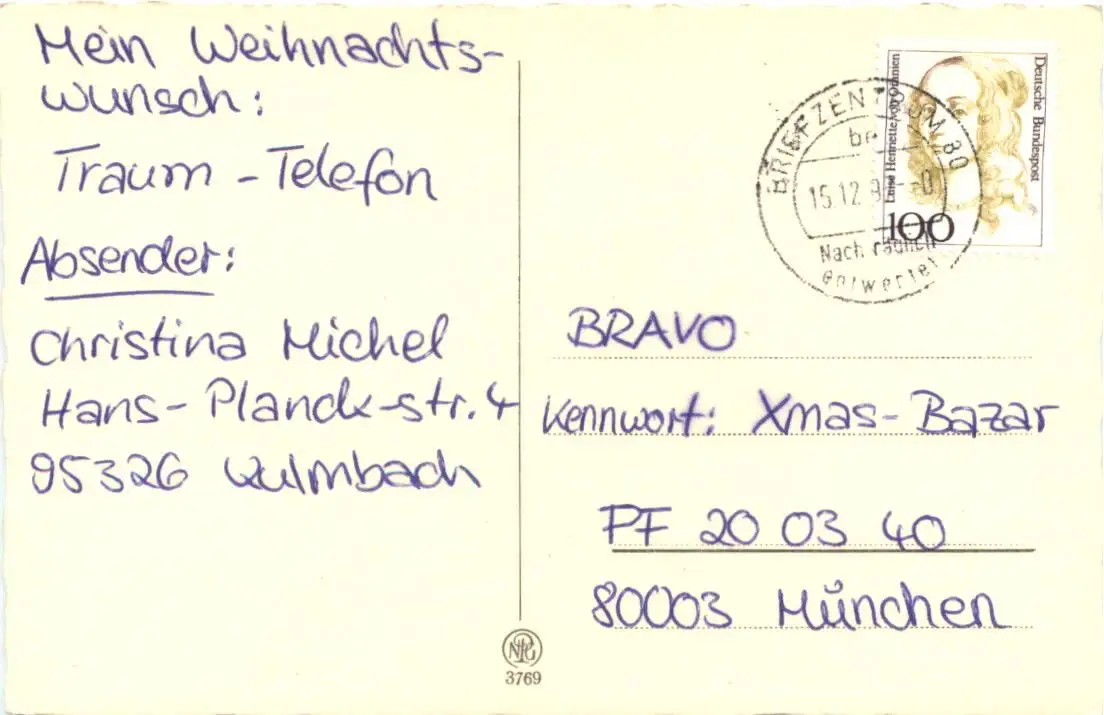 Mein Weihnachts-
wunsch:
Traum - Telefon
Absender:
Christina Michel
Hans-Planck-str. 4
95326 Kulmbach
Deutsche Bundespost
Luise Henriette von Oranien
100
BRIEFZENTRUM 80
15.12.9
Nachträglich
entwertet
BRAVO
Kennwort: Xmas-Bazar
PF 20 03 40
80003 München
3769